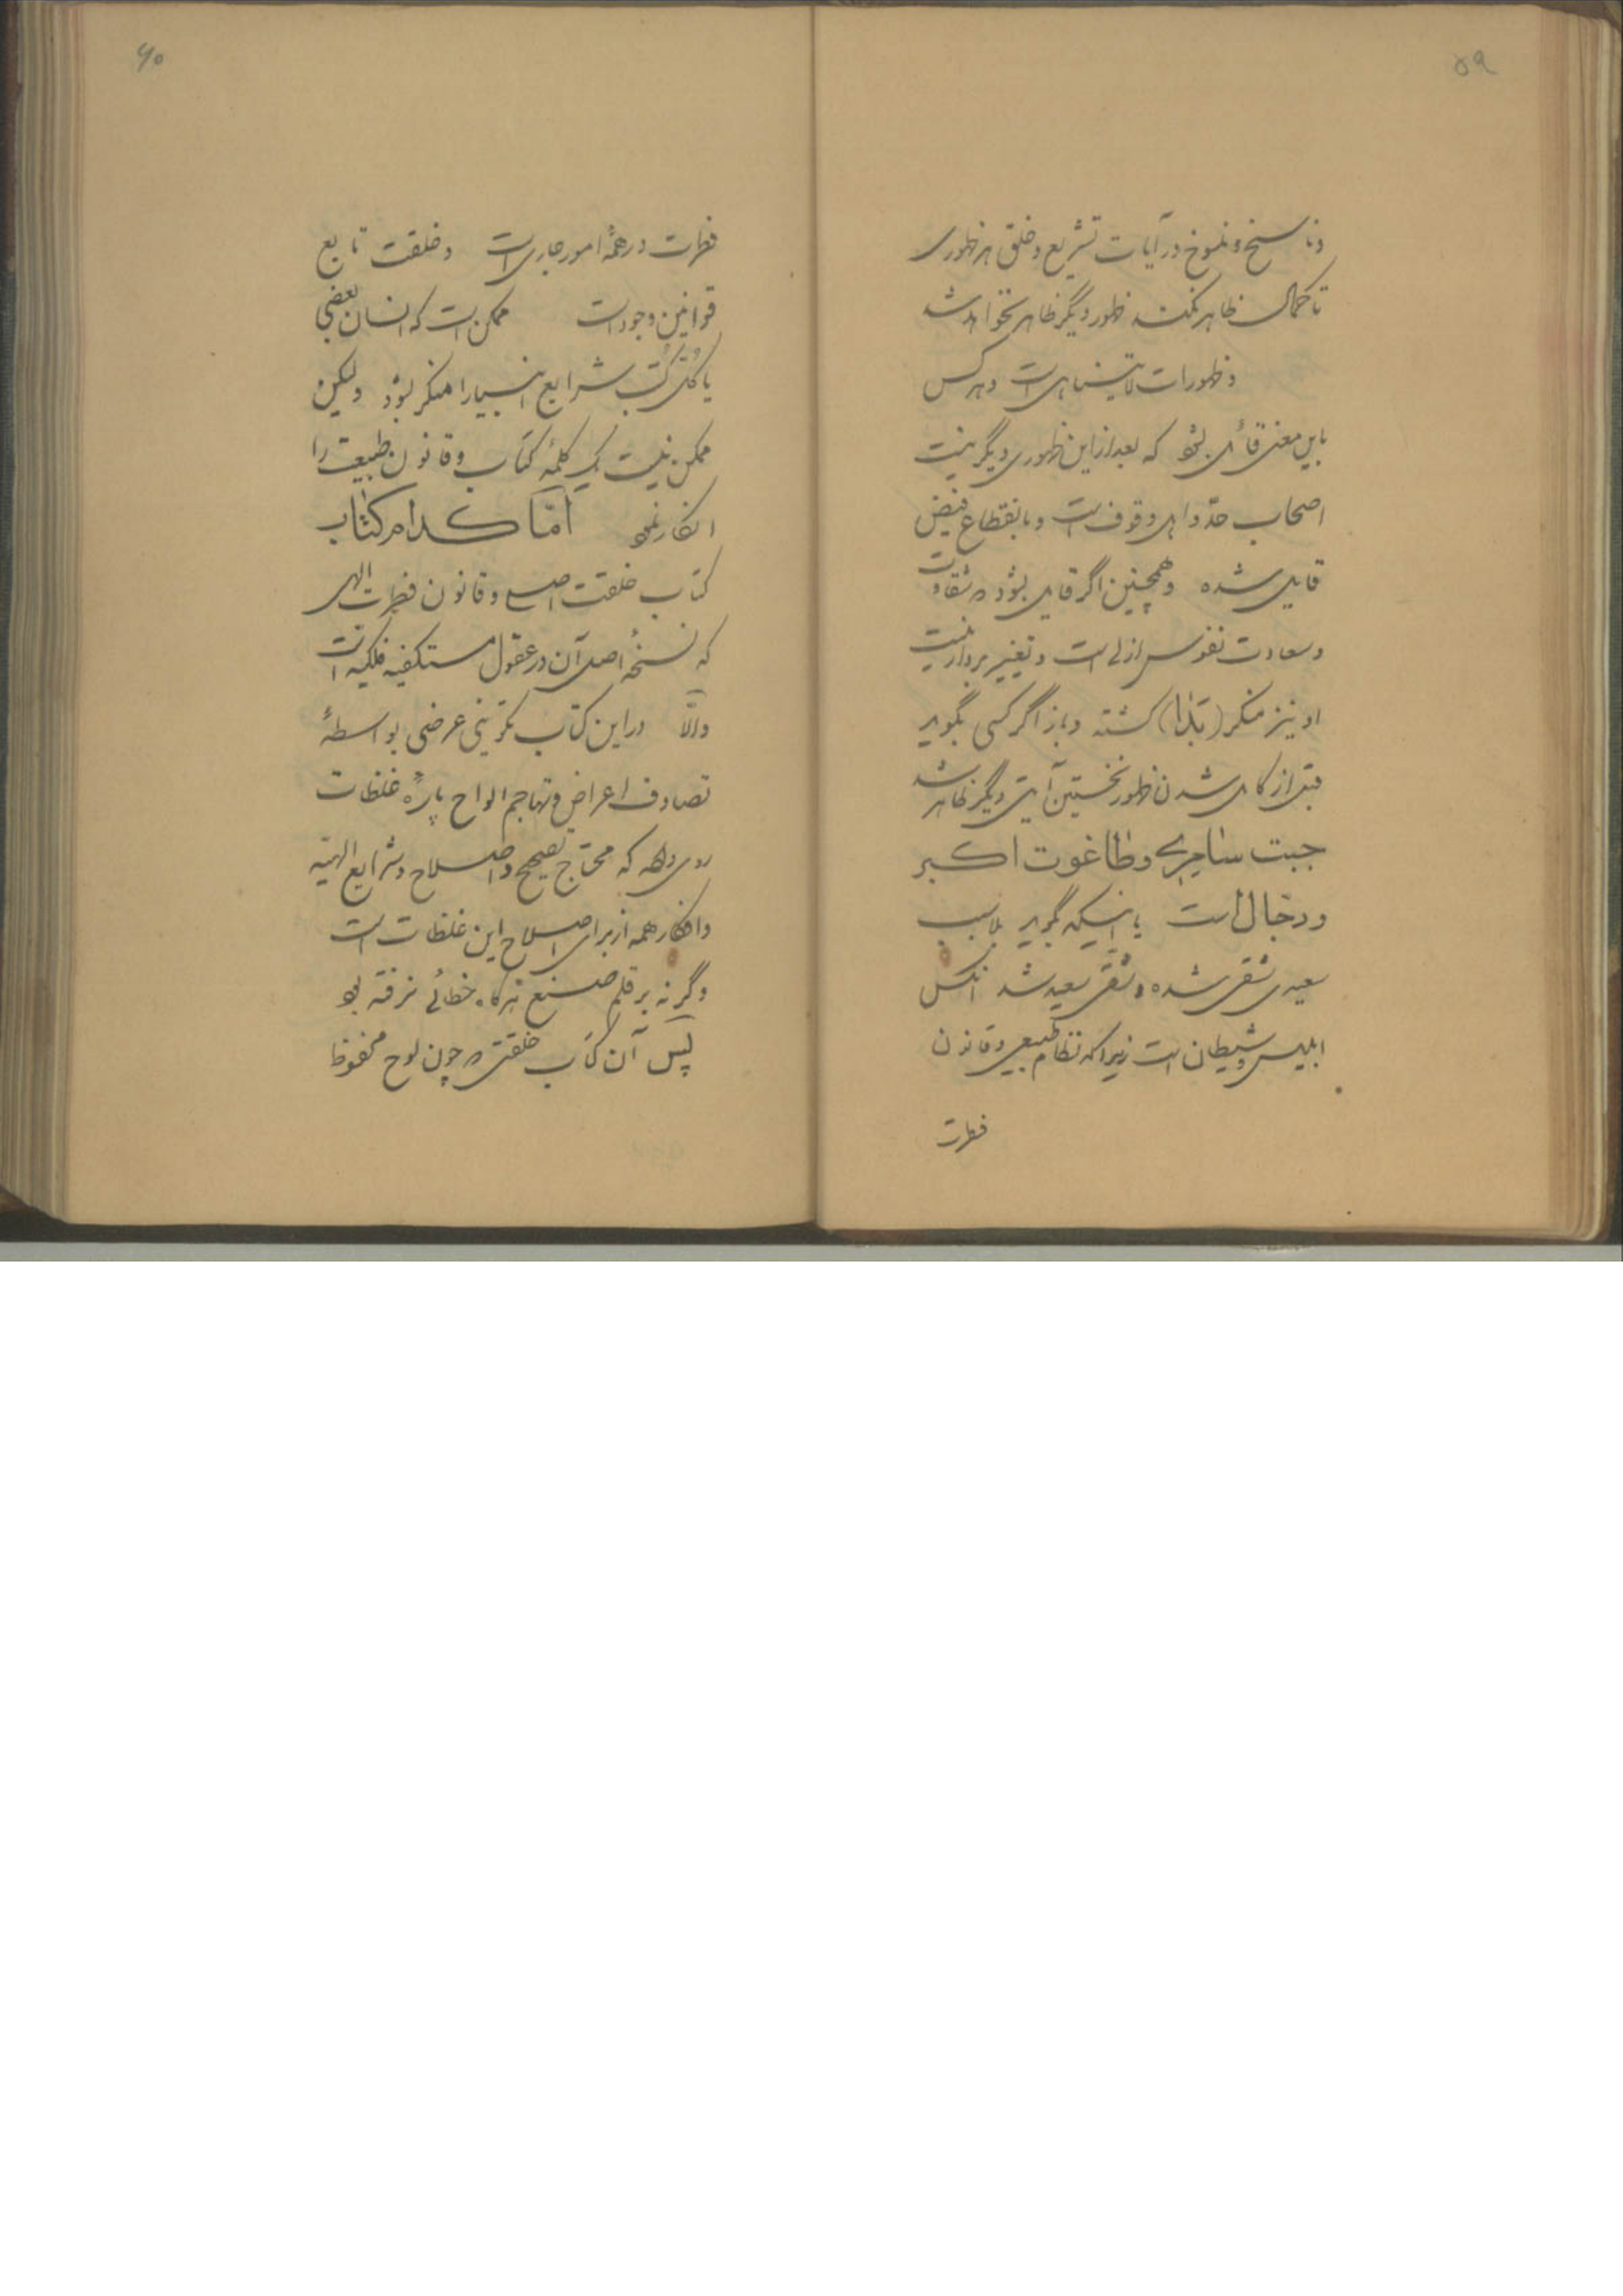 ۵۹
و ناسخ و منسوخ در آیات تشریع و خلق هر ظهوری
تا کمال ظاهر نکند ظهور دیگر ظاهر نخواهد شد
و ظهورات لایتناهی است و هر کس
باین معنی قائل بشود که بعد از این ظهوری دیگر نیست
اصحاب حدّ و اهل وقوف است و بانقطاع فیض
قایل شده و همچنین اگر قایل بشود که شقاوت
و سعادت نفوس ازلی است و تغییر بردار نیست
او نیز منکر (بَدا) گشته و باز اگر کسی بگوید
قبل از کامل شدن ظهور نخستین آیتی دیگر ظاهر شد
جبت سامری و طاغوت اکبر
و دجال است یا اینکه بگوید بلا سبب
سعیدی شقی شده و شقی سعید شد انکس
ابلیس و شیطان است زیرا که نظام طبیعی و قانون
فطرت
۶۰
فطرت در همهٔ امور جاری است و خلقت تابع
قوانین وجود است ممکن است که انسان بعضی
یا کلّ کتب شرایع انبیا را منکر بشود ولیکن
ممکن نیست یک کلمهٔ کتاب و قانون طبیعت را
انکار نمود امّا کدام کتاب
کتاب خلقت اصلی و قانون فطرت الهی
که نسخهٔ اصل آن در عقول مستکفیه فلکیه است
والّا در این کتاب تکوینی عرضی بواسطهٔ
تصادف اعراض و تهاجم الواح پارهٔ غلظات
روی داده که محتاج تصحیح و اصلاح و شرایع الهیّه
و افکار همه از برای اصلاح این غلظات است
وگرنه بر قلم صنع هرگاه خطائی نرفته بود
پس آن کتاب خلقتی که چون لوح محفوظ